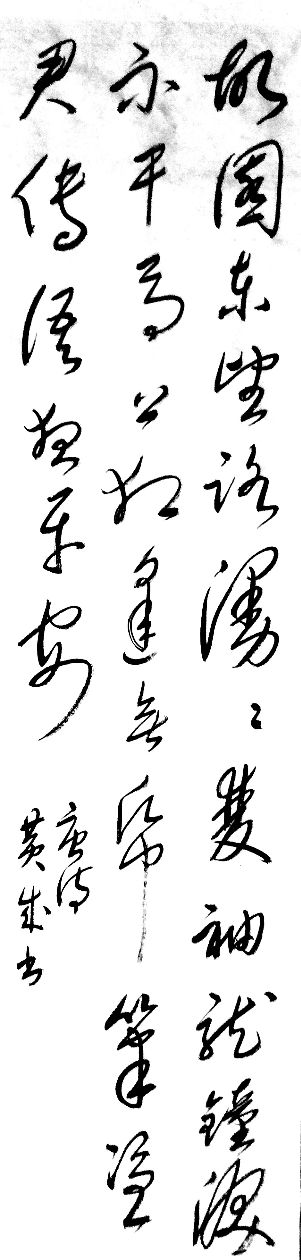 故園東望路漫〻雙袖龍鐘淚
不干馬上相逢無帋筆憑
君傳語報平安
唐诗
黄成书